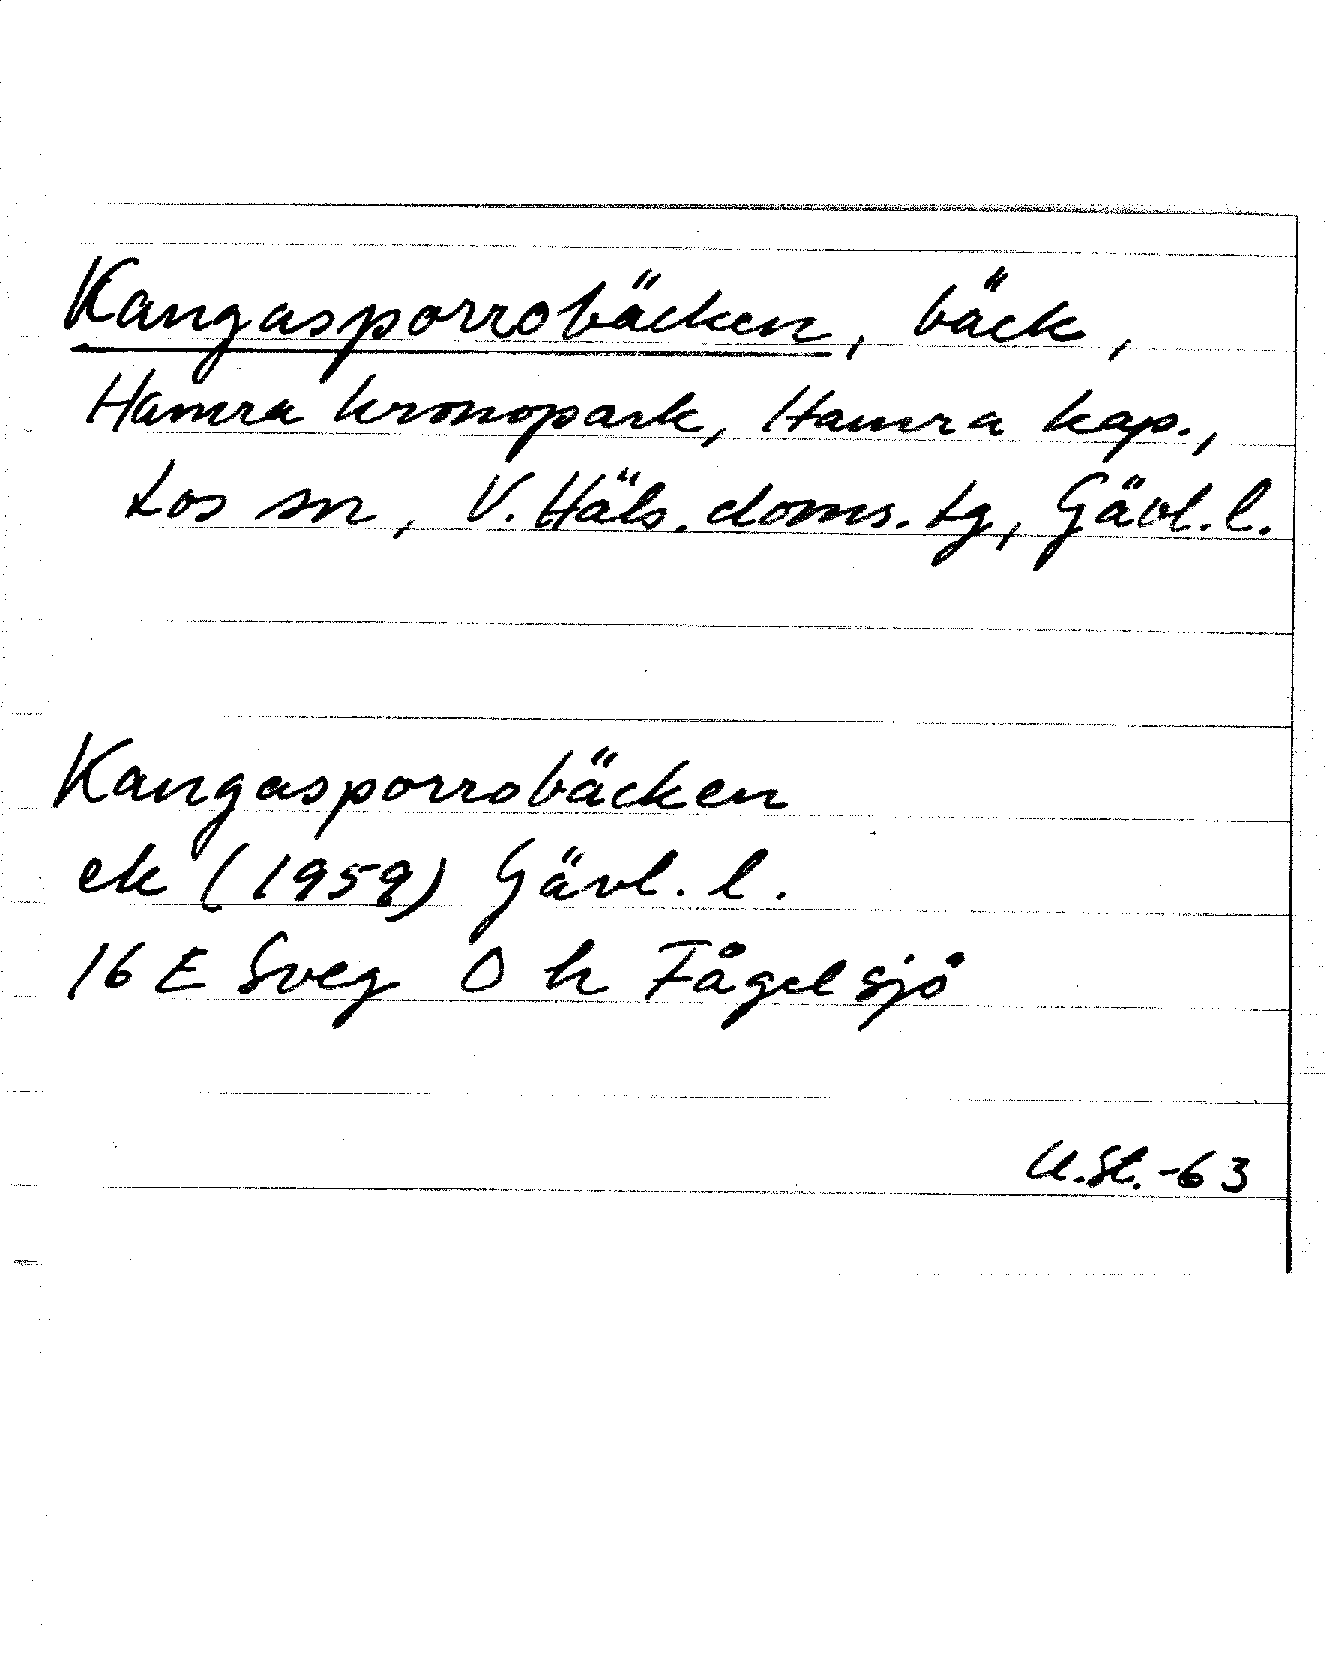 Kangasporrobäcken, bäck,
Hamra kronopark, Hamra kap.,
Los sn, V. Häls. doms. tg, Gävl. l.
Kangasporrobäcken
ek (1959) Gävl. l.
16 E Sveg O h Fågelsjö
U.St.-63